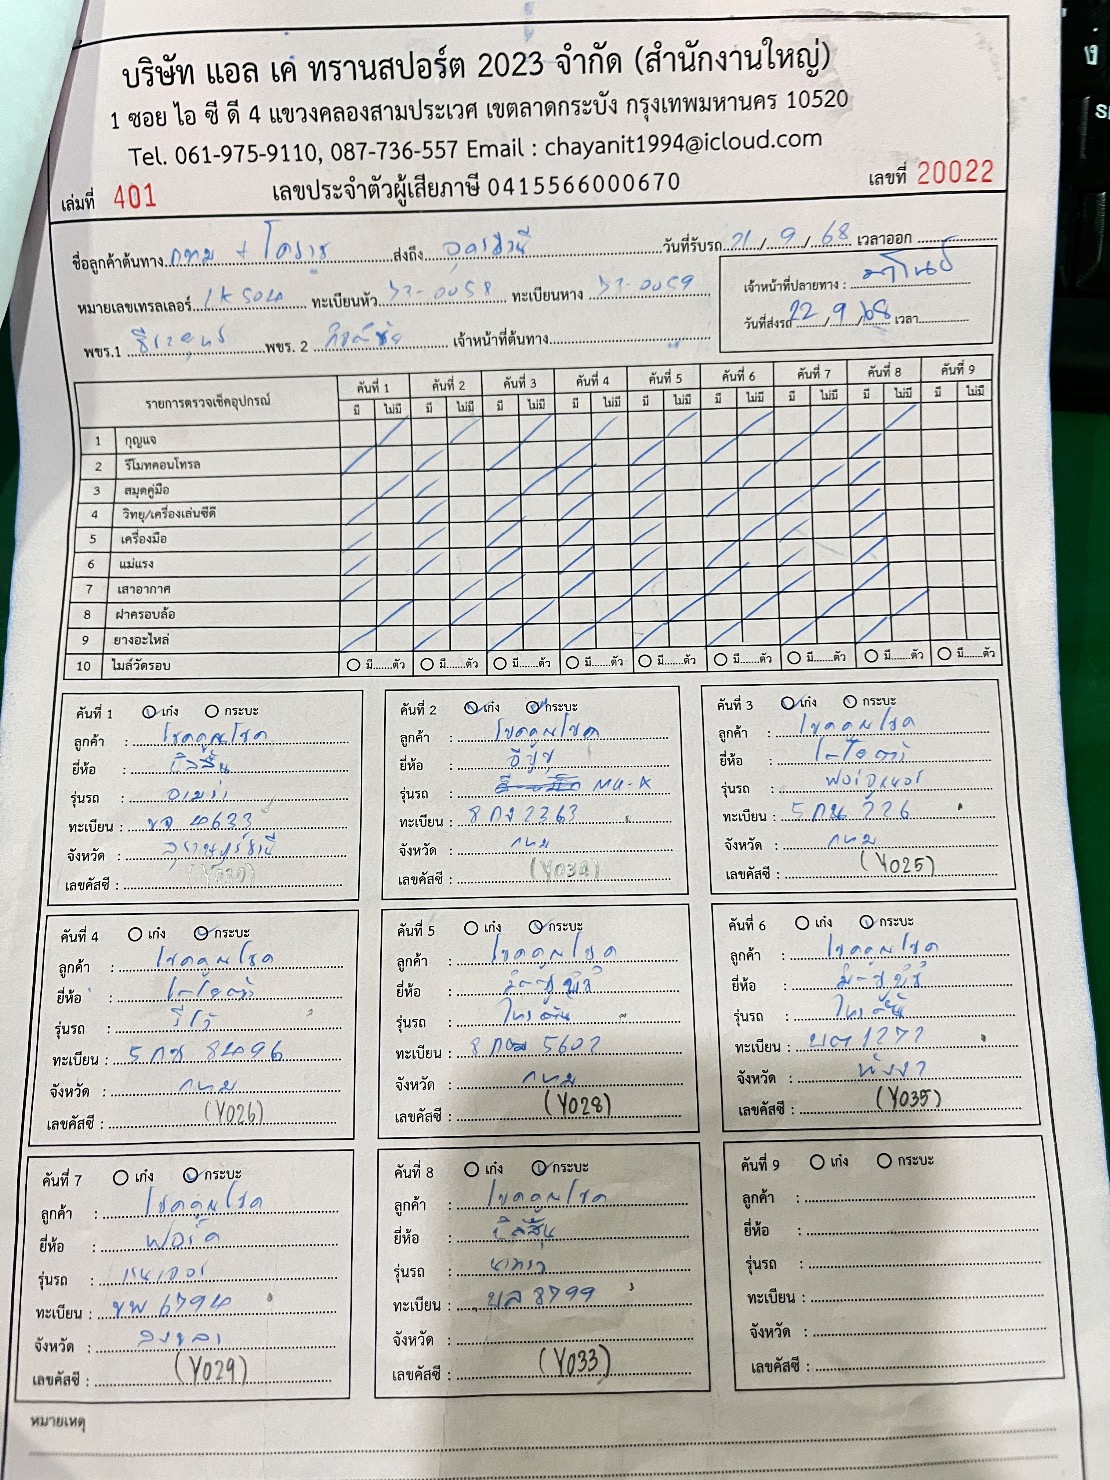 บริษัท แอล เค ทรานสปอร์ต 2023 จำกัด (สำนักงานใหญ่)
1 ซอย ไอ ซี ดี 4 แขวงคลองสามประเวศ เขตลาดกระบัง กรุงเทพมหานคร 10520
Tel. 061-975-9110, 087-736-557 Email : chayanit1994@icloud.com
เล่มที่ 401 เลขประจำตัวผู้เสียภาษี 0415566000670 เลขที่ 20022
ชื่อลูกค้าต้นทาง กทม + โคราช ส่งถึง อุดรธานี วันที่รับรถ 21/9/68 เวลาออก
หมายเลขเทรลเลอร์ ทะเบียนหัว ทะเบียนหาง
เจ้าหน้าที่ปลายทาง :
พขร.1 พขร. 2 เจ้าหน้าที่ต้นทาง
วันที่ส่งรถ 22/9/68 เวลา
รายการตรวจเช็คอุปกรณ์ คันที่ 1 คันที่ 2 คันที่ 3 คันที่ 4 คันที่ 5 คันที่ 6 คันที่ 7 คันที่ 8 คันที่ 9
มี ไม่มี มี ไม่มี มี ไม่มี มี ไม่มี มี ไม่มี มี ไม่มี มี ไม่มี มี ไม่มี มี ไม่มี
1 กุญแจ
2 รีโมทคอนโทรล
3 สมุดคู่มือ
4 วิทยุ/เครื่องเล่นซีดี
5 เครื่องมือ
6 แม่แรง
7 เสาอากาศ
8 ฝาครอบล้อ
9 ยางอะไหล่
10 ไมล์วัดรอบ มี......ตัว มี......ตัว มี......ตัว มี......ตัว มี......ตัว มี......ตัว มี......ตัว มี......ตัว มี......ตัว
คันที่ 1 เก๋ง กระบะ
ลูกค้า : โชคคูณโชค
ยี่ห้อ : นิสสัน
รุ่นรถ : อเมร่า
ทะเบียน : ขจ 4633
จังหวัด : สุราษฎร์ธานี
เลขคัสซี :
คันที่ 2 เก๋ง กระบะ
ลูกค้า : โชคคูณโชค
ยี่ห้อ : อีซูซุ
รุ่นรถ : MU-X
ทะเบียน : 8 กง 2363
จังหวัด : กทม
เลขคัสซี : (Y034)
คันที่ 3 เก๋ง กระบะ
ลูกค้า : โชคคูณโชค
ยี่ห้อ : โตโยต้า
รุ่นรถ : ฟอจูนเนอร์
ทะเบียน : 5 กน 226
จังหวัด : กทม
เลขคัสซี : (Y025)
คันที่ 4 เก๋ง กระบะ
ลูกค้า : โชคคูณโชค
ยี่ห้อ : โตโยต้า
รุ่นรถ : รีโว้
ทะเบียน : 5 กช 8496
จังหวัด : กทม
เลขคัสซี : (Y026)
คันที่ 5 เก๋ง กระบะ
ลูกค้า : โชคคูณโชค
ยี่ห้อ : มิตซูบิชิ
รุ่นรถ : ไทรตัน
ทะเบียน : 5602
จังหวัด : กทม
เลขคัสซี : (Y028)
คันที่ 6 เก๋ง กระบะ
ลูกค้า : โชคคูณโชค
ยี่ห้อ : มิตซูบิชิ
รุ่นรถ : ไทรตัน
ทะเบียน : บต 1272
จังหวัด : พังงา
เลขคัสซี : (Y035)
คันที่ 7 เก๋ง กระบะ
ลูกค้า : โชคคูณโชค
ยี่ห้อ : ฟอร์ด
รุ่นรถ : เรนเจอร์
ทะเบียน : ขพ 6794
จังหวัด : สงขลา
เลขคัสซี : (Y029)
คันที่ 8 เก๋ง กระบะ
ลูกค้า : โชคคูณโชค
ยี่ห้อ : นิสสัน
รุ่นรถ : นาวาร่า
ทะเบียน : บล 8799
จังหวัด :
เลขคัสซี : (Y033)
คันที่ 9 เก๋ง กระบะ
ลูกค้า :
ยี่ห้อ :
รุ่นรถ :
ทะเบียน :
จังหวัด :
เลขคัสซี :
หมายเหตุ